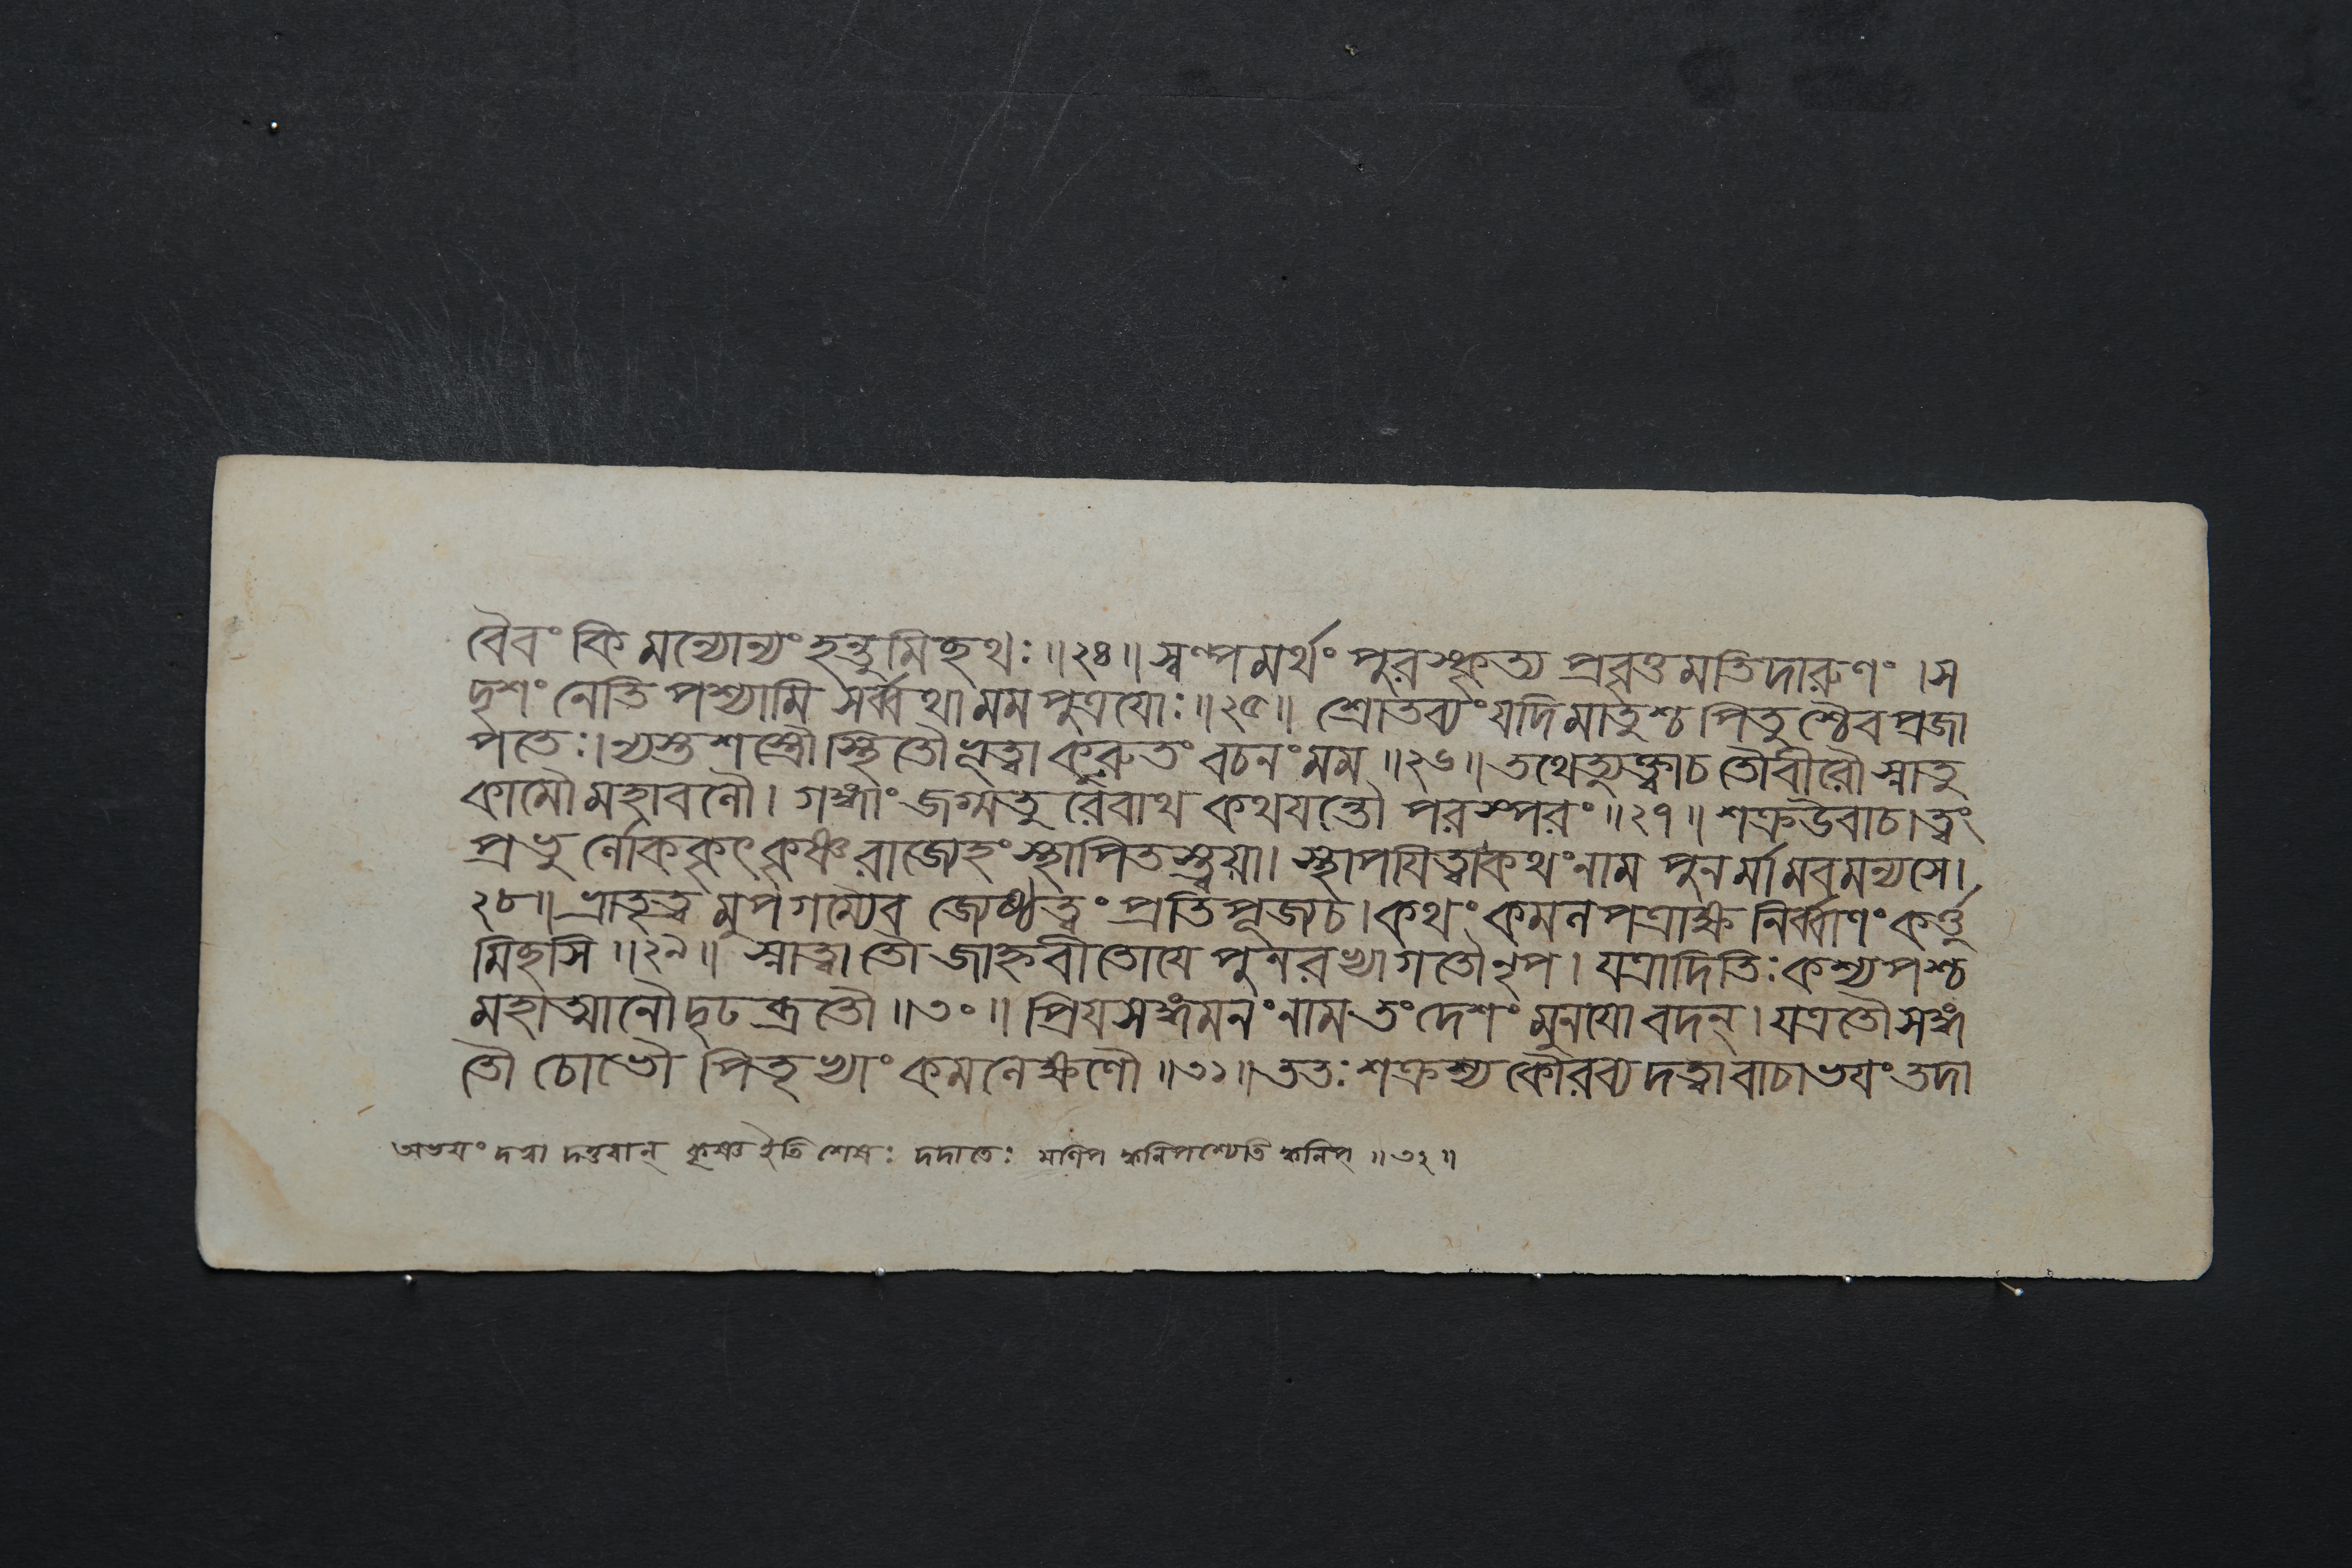 বৈবং কিমন্যোন্যং হন্তুমিচ্ছথঃ ॥২৪॥ স্বল্পমর্থং পুরস্কৃত্য প্রবৃত্তমতিদারুণং । স
দৃশং নেতি পশ্যামি সর্ব্বথা মম পুত্রযোঃ ॥২৫॥ শ্রোতব্যং যদি মাতুশ্চ পিতুশ্চৈব প্রজা
পতেঃ । ন্যস্তশস্ত্রৌ স্থিতৌ ভূত্বা কুরুতং বচনং মম ॥২৬॥ তথেত্যুক্ত্বা চ তৌ বীরৌ স্নাতু
কামৌ মহাবলৌ । গঙ্গাং জগ্মতুরেবাথ কথযন্তৌ পরস্পরং ॥২৭॥ শক্র উবাচ । ত্বং
প্রভুর্লোককৃৎ কৃষ্ণ রাজ্যেহং স্থাপিতস্ত্বয়া । স্থাপযিত্বা কথং নাম পুনর্মামবমন্যসে ।
২৮॥ ভ্রাতৃত্বমুপগম্যৈব জ্যেষ্ঠত্বং প্রতিপূজ্য চ । কথং কমলপত্রাক্ষ নির্ব্বাণং কর্ত্তু
মিচ্ছসি ॥২৯॥ স্নাত্বা তৌ জাহ্নবীতোযে পুনরভ্যাগতৌ নৃপ । যত্রাদিতিঃ কশ্যপশ্চ
মহাত্মানৌ দৃঢব্রতৌ ॥৩০॥ প্রিযসঙ্গমনং নাম তং দেশং মুনযো বদন্ । যত্র তৌ সঙ্গ
তৌ চোভৌ পিতৃভ্যাং কমলেক্ষণৌ ॥৩১॥ ততঃ শক্রস্য কৌরব্য দত্বা বাচাভযং তদা
অভযং দত্বা দত্তবান্ কৃষ্ণ ইতি শেষঃ দদাতেঃ ক্বনিপ্ ॥৩২॥